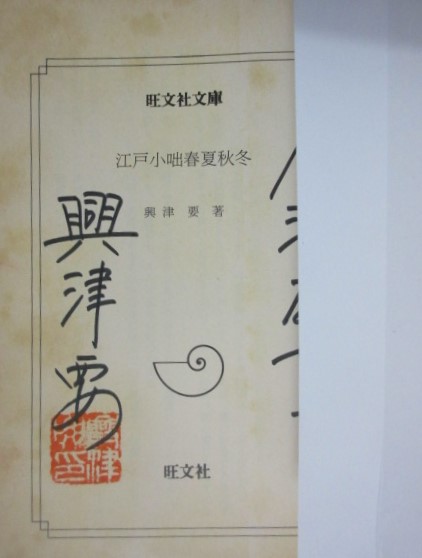 旺文社文庫
江戸小咄春夏秋冬
興津 要 著
興津要
旺文社